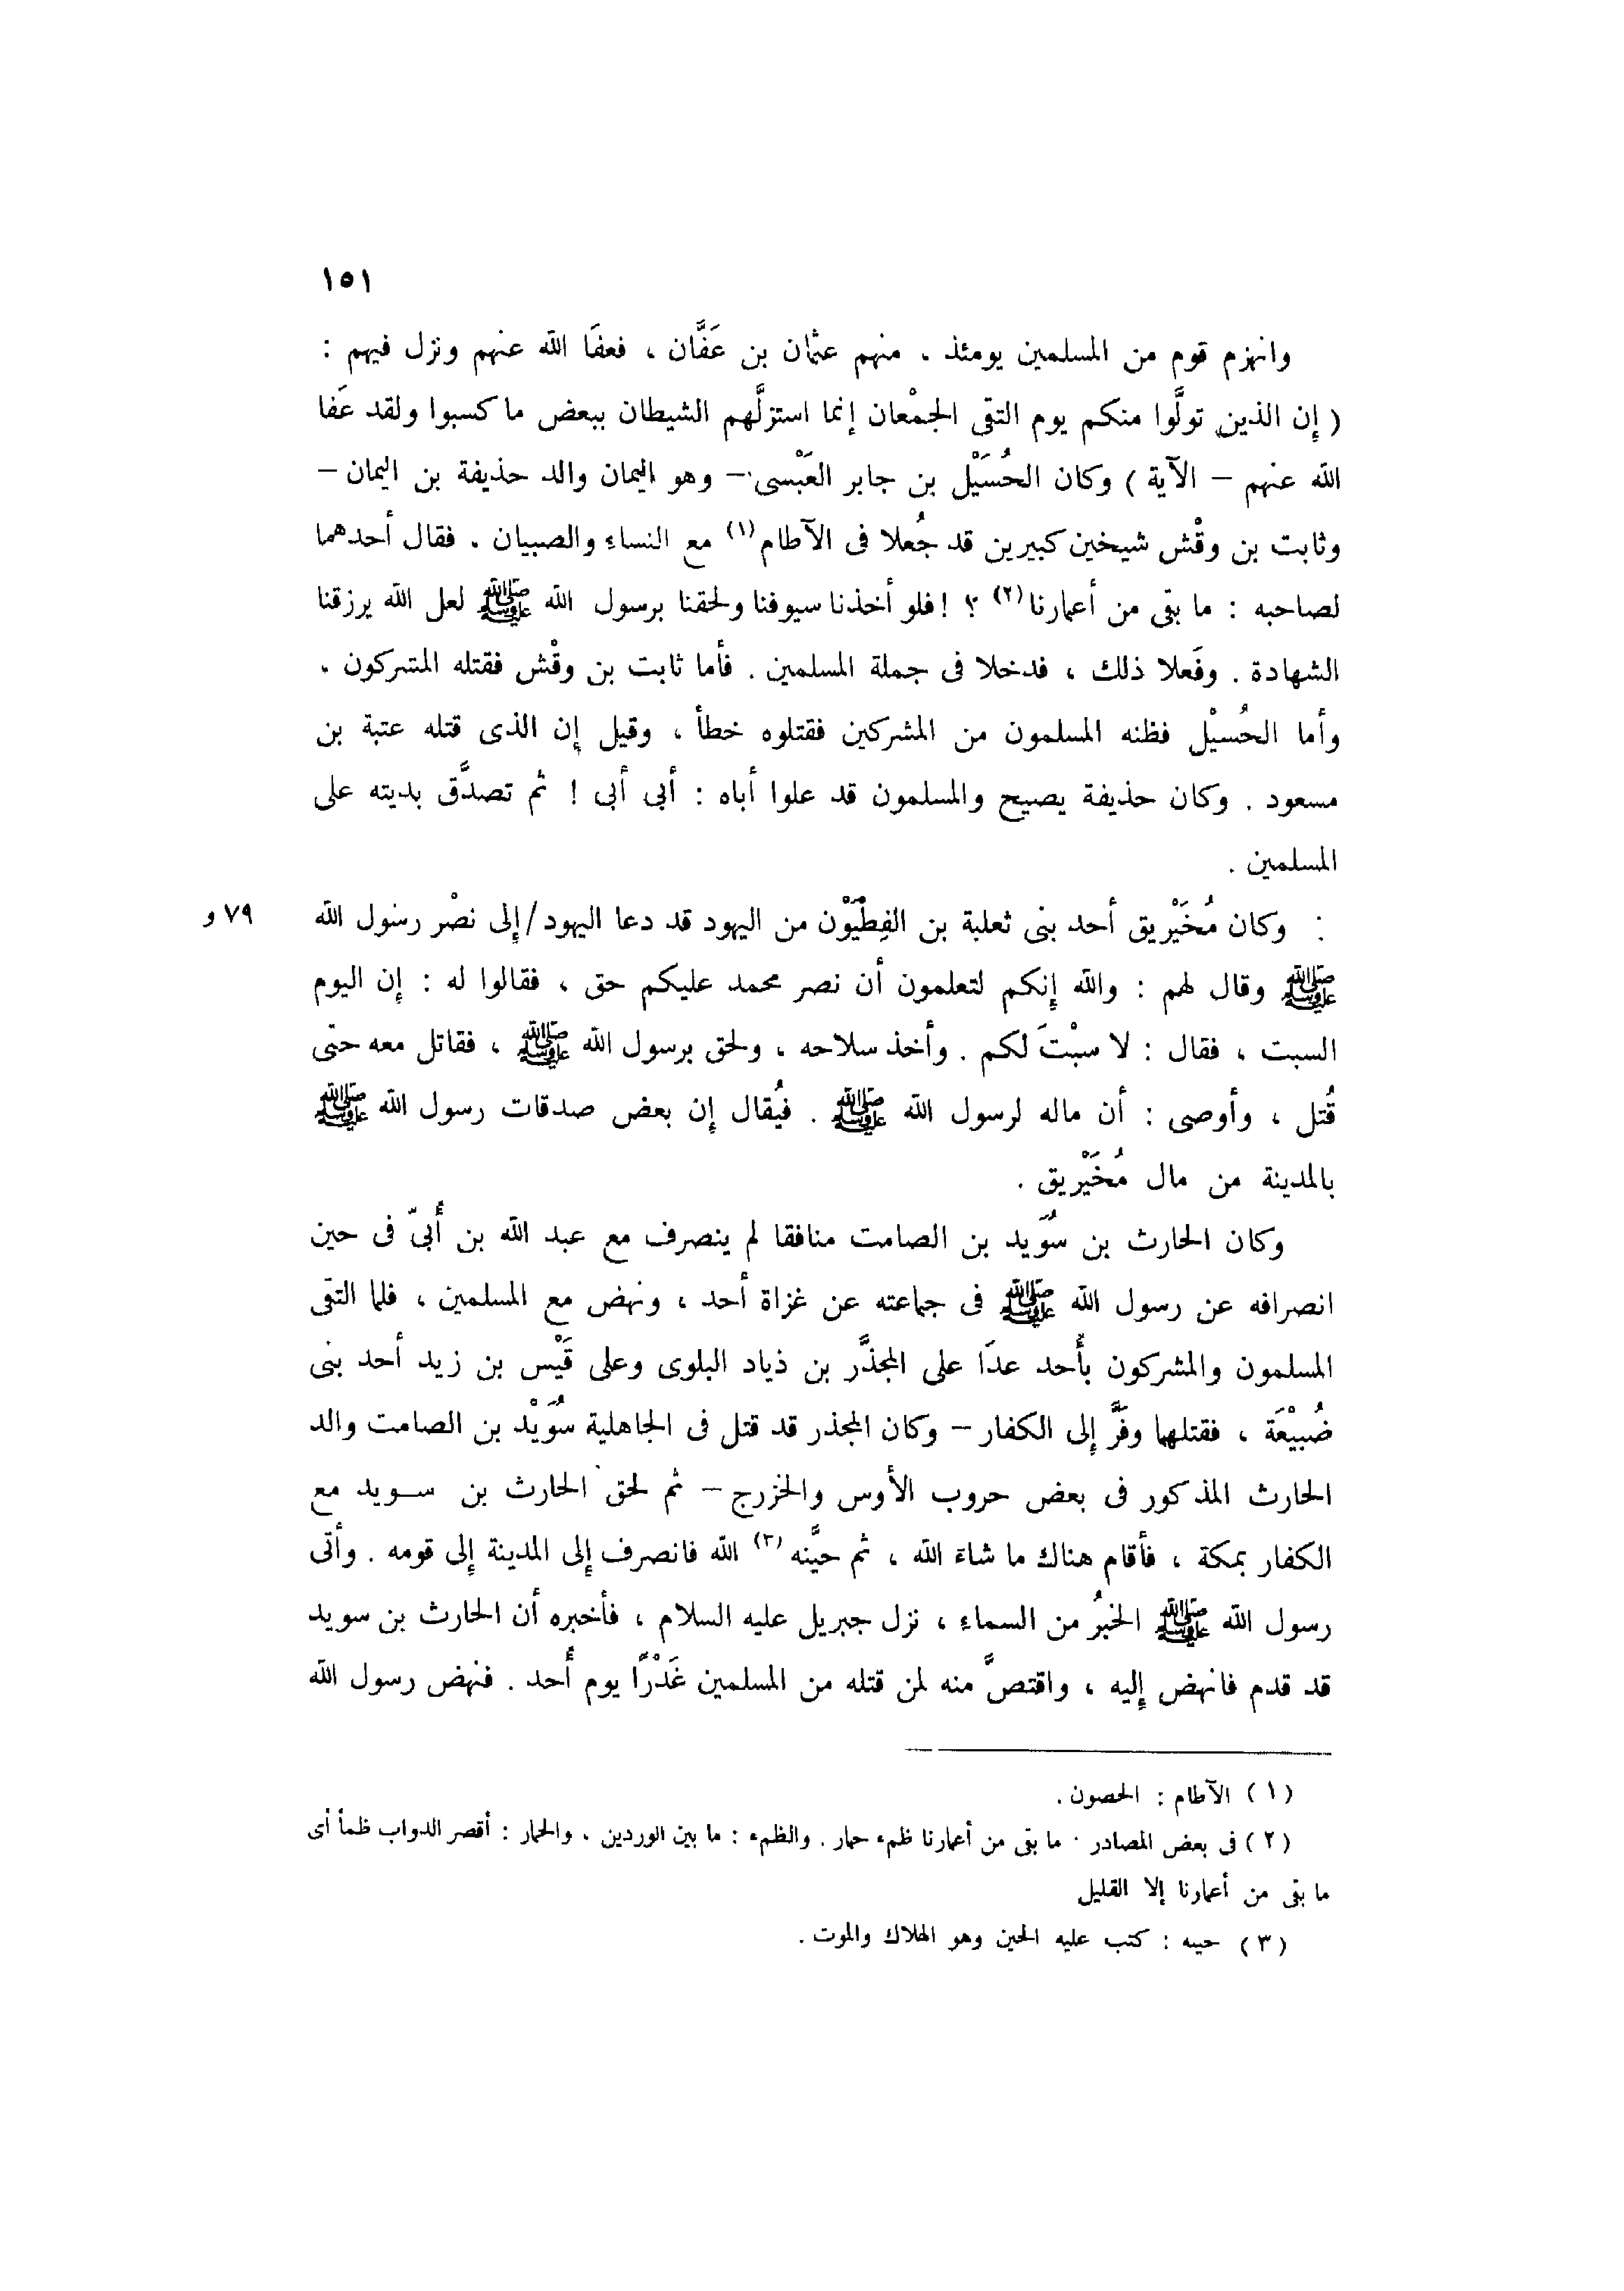 ١٥١
وانهزم قوم من المسلمين يومئذ ، منهم عثمان بن عَفَّان ، فعفَا الله عنهم ونزل فيهم :
( إن الذين تولَّوا منكم يوم التقى الجمْعان إنما استزلَّهم الشيطان ببعض ما كسبوا ولقد عَفا
الله عنهم – الآية ) وكان الحُسَيْل بن جابر العَبْسى – وهو اليمان والد حذيفة بن اليمان –
وثابت بن وقْش شيخين كبيرين قد جُعلا فى الآطام (١) مع النساء والصبيان . فقال أحدهما
لصاحبه : ما بقى من أعمارنا (٢) ؟ ! فلو أخذنا سيوفنا ولحقنا برسول الله ﷺ لعل الله يرزقنا
الشهادة . وفَعلا ذلك ، فدخلا فى جملة المسلمين . فأما ثابت بن وقْش فقتله المشركون ،
وأما الحُسيْل فظنه المسلمون من المشركين فقتلوه خطأ ، وقيل إن الذى قتله عتبة بن
مسعود . وكان حذيفة يصيح والمسلمون قد علوا أباه : أبى أبى ! ثم تصدَّق بديته على
المسلمين .
: وكان مُخَيْريق أحد بنى ثعلبة بن الفِطْيَوْن من اليهود قد دعا اليهود/إلى نصْر رسول الله ٧٩ و
ﷺ وقال لهم : والله إنكم لتعلمون أن نصر محمد عليكم حق ، فقالوا له : إن اليوم
السبت ، فقال : لا سبْتَ لكم . وأخذ سلاحه ، ولحق برسول الله ﷺ ، فقاتل معه حتى
قُتل ، وأوصى : أن ماله لرسول الله ﷺ . فيُقال إن بعض صدقات رسول الله ﷺ
بالمدينة من مال مُخَيْريق .
وكان الحارث بن سُوَيد بن الصامت منافقا لم ينصرف مع عبد الله بن أُبىّ فى حين
انصرافه عن رسول الله ﷺ فى جماعته عن غزاة أحد ، ونهض مع المسلمين ، فلما التقى
المسلمون والمشركون بأُحد عدَا على المجذَّر بن ذياد البلوى وعلى قَيْس بن زيد أحد بنى
ضُبيْعَة ، فقتلهما وفَرَّ إلى الكفار – وكان المجذر قد قتل فى الجاهلية سُوَيْد بن الصامت والد
الحارث المذكور فى بعض حروب الأوس والخزرج – ثم لحق الحارث بن سـويد مع
الكفار بمكة ، فأقام هناك ما شاءَ الله ، ثم حيَّنه (٣) الله فانصرف إلى المدينة إلى قومه . وأتى
رسول الله ﷺ الخبرُ من السماء ، نزل جبريل عليه السلام ، فأخبره أن الحارث بن سويد
قد قدم فانهض إليه ، واقتصَّ منه لمن قتله من المسلمين غَدْرًا يوم أُحد . فنهض رسول الله
(١) الآطام : الحصون .
(٢) فى بعض المصادر · ما بقى من أعمارنا ظمء حمار . والظمء : ما بين الوردين ، والحمار : أقصر الدواب ظمأ أى
ما بقى من أعمارنا إلا القليل
(٣) حينه : كتب عليه الحين وهو الهلاك والموت .